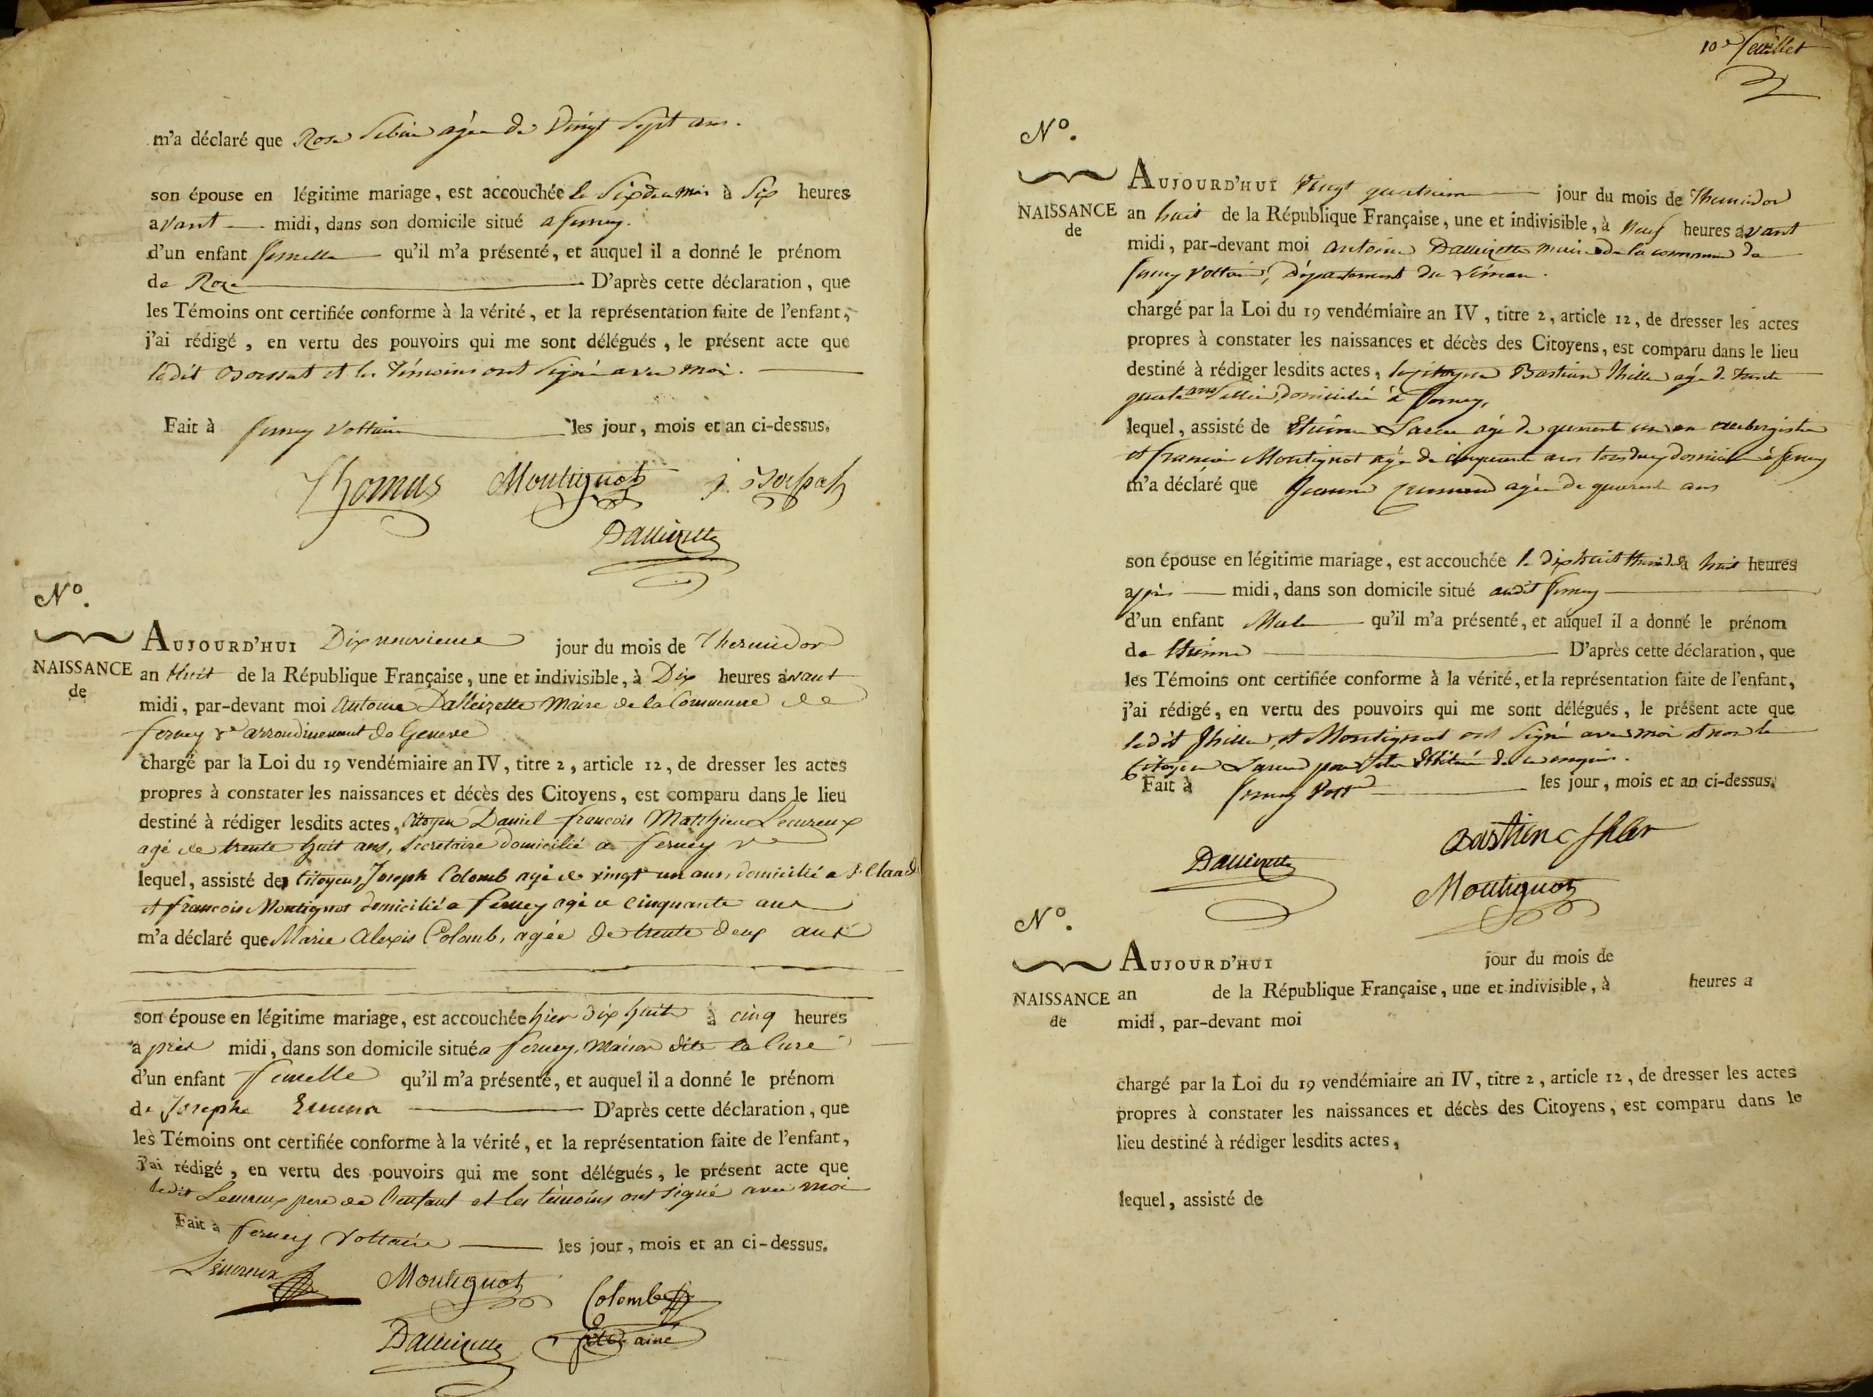 m'a déclaré que Rose agée de Vingt Sept ans.
son épouse en légitime mariage, est accouchée le Six du mois à Six heures
avant midi, dans son domicile situé a ferney.
d'un enfant femelle qu'il m'a présenté, et auquel il a donné le prénom
de Roze D'après cette déclaration, que
les Témoins ont certifiée conforme à la vérité, et la représentation faite de l'enfant,
j'ai rédigé, en vertu des pouvoirs qui me sont délégués, le présent acte que
ledit et les Témoins ont Signé avec moi.
Fait à ferney Voltaire les jour, mois et an ci-dessus.
Thomas Moutignot
Dallizette
N°.
AUJOURD'HUI Dix neuvieme jour du mois de Thermidor
NAISSANCE an Huit de la République Française, une et indivisible, à Dix heures avant
de
midi, par-devant moi Antoine Dallizette Maire de la Commune de
ferney arrondissement de Geneve
chargé par la Loi du 19 vendémiaire an IV, titre 2, article 12, de dresser les actes
propres à constater les naissances et décès des Citoyens, est comparu dans le lieu
destiné à rédiger lesdits actes, Citoyen Daniel francois Matthieu Lecureux
agé de trente huit ans, Secretaire domicilié a ferney
lequel, assisté des Citoyens Joseph Colomb agé de vingt un ans, domicilié a St Claude
et francois Moutignot domicilié a ferney agé de cinquante ans
m'a déclaré que Marie Alexis Colomb, agée de trente deux ans
son épouse en légitime mariage, est accouchée hier dix huit à cinq heures
après midi, dans son domicile situé a ferney, Maison dite la Cure
d'un enfant femelle qu'il m'a présenté, et auquel il a donné le prénom
de Josephe Emma D'après cette déclaration, que
les Témoins ont certifiée conforme à la vérité, et la représentation faite de l'enfant,
j'ai rédigé, en vertu des pouvoirs qui me sont délégués, le présent acte que
ledit Lecureux pere de l'enfant et les témoins ont signé avec moi
Fait à ferney Voltaire les jour, mois et an ci-dessus.
Lecureux Moutignot Colomb
Dallizette ainé
10e feuillet
N°.
AUJOURD'HUI Vingt quatrieme jour du mois de Thermidor
NAISSANCE an huit de la République Française, une et indivisible, à Neuf heures avant
de
midi, par-devant moi Antoine Dallizette maire de la commune de
ferney Voltaire, Département du Léman.
chargé par la Loi du 19 vendémiaire an IV, titre 2, article 12, de dresser les actes
propres à constater les naissances et décès des Citoyens, est comparu dans le lieu
destiné à rédiger lesdits actes, le citoyen Bastian agé de trente
quatre ans domicilié à ferney,
lequel, assisté de Etienne agé de quarente un an aubergiste
et francois Moutignot agé de cinquante ans tous deux domiciliés à ferney
m'a déclaré que Jeanne agée de quarente ans
son épouse en légitime mariage, est accouchée le dix huit à huit heures
après midi, dans son domicile situé audit ferney
d'un enfant Male qu'il m'a présenté, et auquel il a donné le prénom
de Etienne D'après cette déclaration, que
les Témoins ont certifiée conforme à la vérité, et la représentation faite de l'enfant,
j'ai rédigé, en vertu des pouvoirs qui me sont délégués, le présent acte que
ledit et Moutignot ont Signé avec moi et non le
Citoyen pour être de ce enquis.
Fait à ferney les jour, mois et an ci-dessus.
Dallizette
Moutignot
N°.
AUJOURD'HUI jour du mois de
NAISSANCE an de la République Française, une et indivisible, à heures a
de
midi, par-devant moi
chargé par la Loi du 19 vendémiaire an IV, titre 2, article 12, de dresser les actes
propres à constater les naissances et décès des Citoyens, est comparu dans le
lieu destiné à rédiger lesdits actes,
lequel, assisté de